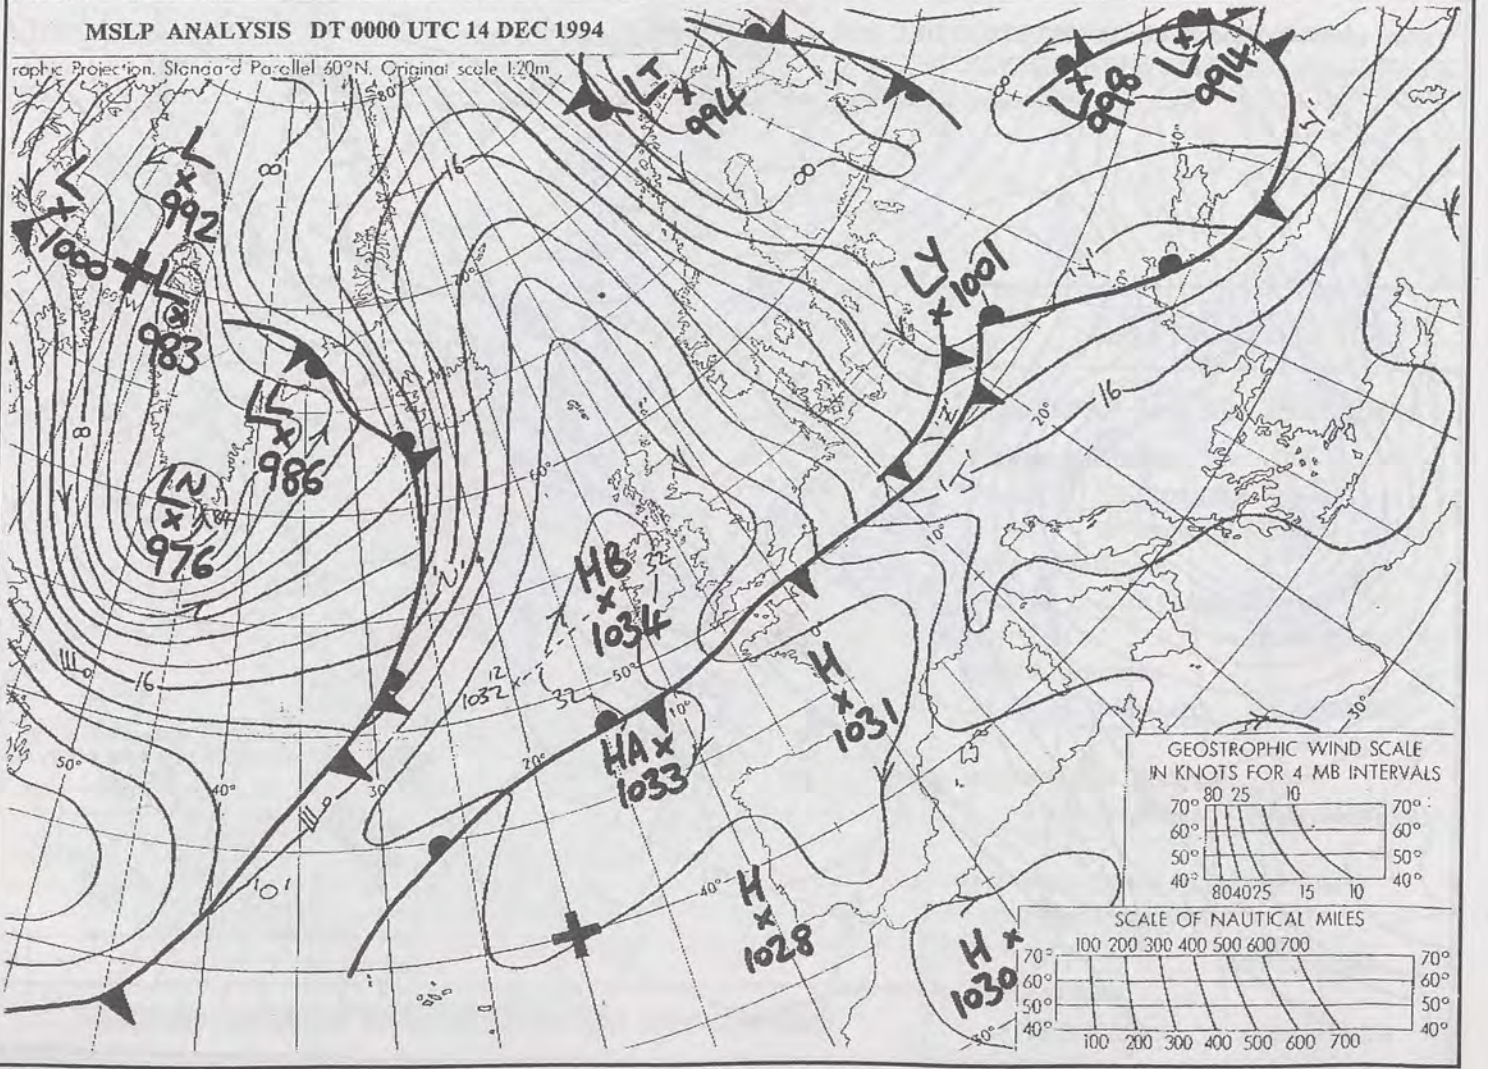 MSLP ANALYSIS DT 0000 UTC 14 DEC 1994
raphic Projection. Standard Parallel 60°N. Original scale 1:20m
80°
LT
994
L
998
LT
994
L
992
L
1000
L
983
8
16
8
8
LY
1001
LL
986
LN
976
8
16
20°
60°
10°
'N'
HB
1034
32
12
1032
32
50°
10°
H
1031
HA
1033
16
50°
40°
30
20°
30°
40°
H
1028
H
1030
30°
GEOSTROPHIC WIND SCALE
IN KNOTS FOR 4 MB INTERVALS
80 25 10
70° 70°
60° 60°
50° 50°
40° 40°
80 40 25 15 10
SCALE OF NAUTICAL MILES
100 200 300 400 500 600 700
70° 70°
60° 60°
50° 50°
40° 40°
100 200 300 400 500 600 700